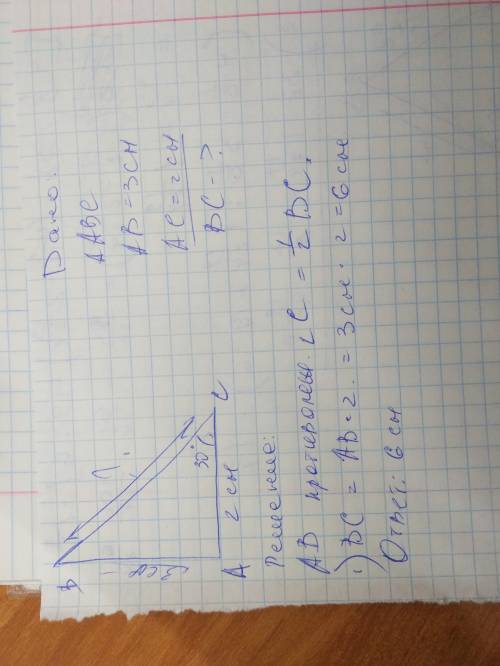 Дано:
ΔABC
AB = 3 см
AC = 2 см
BC - ?
B
?
3 см
30°
A
2 см
C
Решение:
AB противолеж. ∠C = 1/2 BC,
BC = AB · 2 = 3 см · 2 = 6 см
Ответ: 6 см